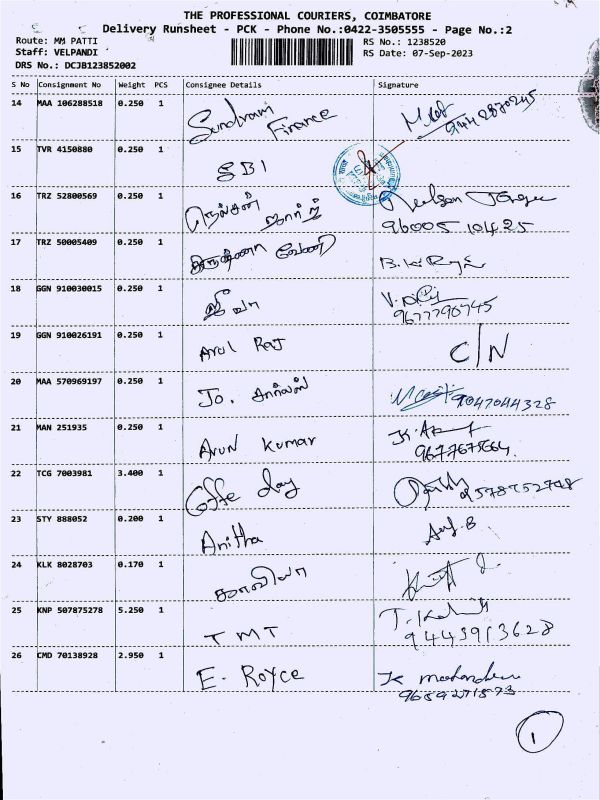 THE PROFESSIONAL COURIERS, COIMBATORE
Delivery Runsheet - PCK - Phone No.:0422-3505555 - Page No.:2
Route: MM PATTI RS No.: 1238520
Staff: VELPANDI RS Date: 07-Sep-2023
DRS No.: DCJB123852002
S No Consignment No Weight PCS Consignee Details Signature
14 MAA 106288518 0.250 1 Sundram Finance
15 TVR 4150880 0.250 1 SBI
16 TRZ 52800569 0.250 1 நெல்சன் ஜார்ஜ் Nelson George
96005 10425
17 TRZ 50005409 0.250 1 கிருஷ்ணா வேணி
18 GGN 910030015 0.250 1 ஜீவா
9677790745
19 GGN 910026191 0.250 1 Arul Raj C/N
20 MAA 570969197 0.250 1 Jo. சார்லஸ் 9047044328
21 MAN 251935 0.250 1 Arun Kumar
9677675664
22 TCG 7003981 3.400 1 Coffe day
23 STY 888052 0.200 1 Anitha
24 KLK 8028703 0.170 1 காவியா
25 KNP 507875278 5.250 1 TMT
9443913628
26 CMD 70138928 2.950 1 E. Royce
9659271573
1